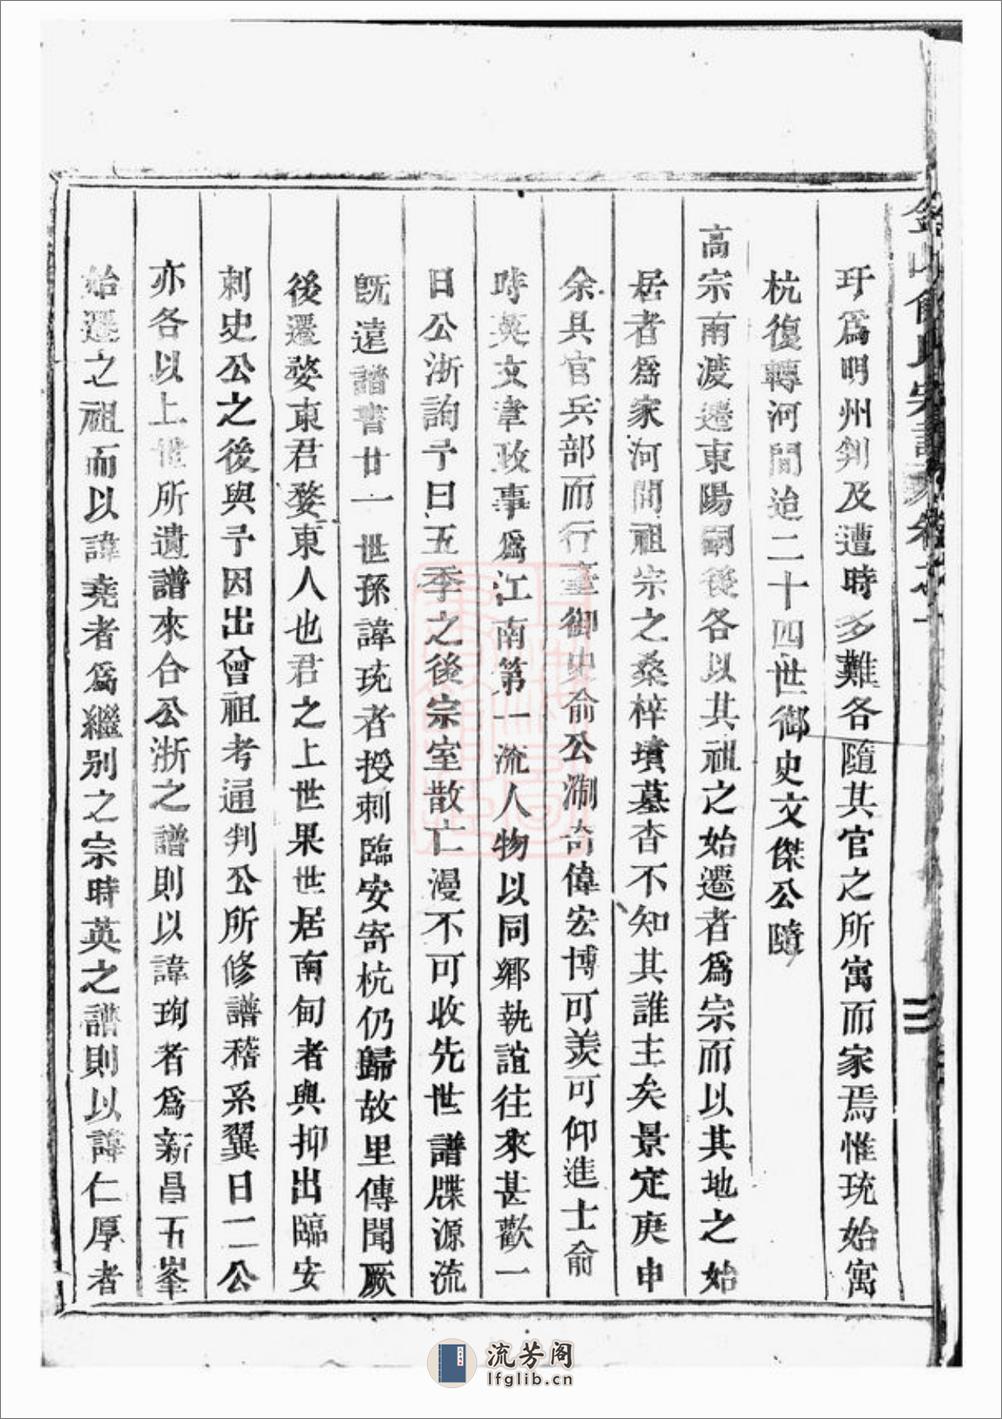 玗爲明州判及遭時多難各隨其官之所寓而家焉惟珫始寓
杭復轉河間迨二十四世御史文傑公隨
高宗南渡遷東陽嗣後各以其祖之始遷者爲宗而以其地之始
居者爲家河間祖宗之桑梓墳墓杳不知其誰主矣景定庚申
余具官兵部而行臺御史俞公淛奇偉宏博可羨可仰進士俞
時英文章政事爲江南第一流人物以同鄉執誼往來甚歡一
日公浙詢予曰五季之後宗室散亡漫不可收先世譜牒源流
既遠譜書廿一世孫諱珫者授刺臨安寄杭仍歸故里傳聞厥
後遷婺東君婺東人也君之上世果世居南甸者與抑出臨安
刺史公之後與予因出曾祖考通判公所修譜稽系翼日二公
亦各以上世所遺譜來合公浙之譜則以諱珣者爲新昌五峯
始遷之祖而以諱堯者爲繼别之宗時英之譜則以諱仁厚者
俞氏宗譜 卷之一
三
流芳阁
lfglib.cn